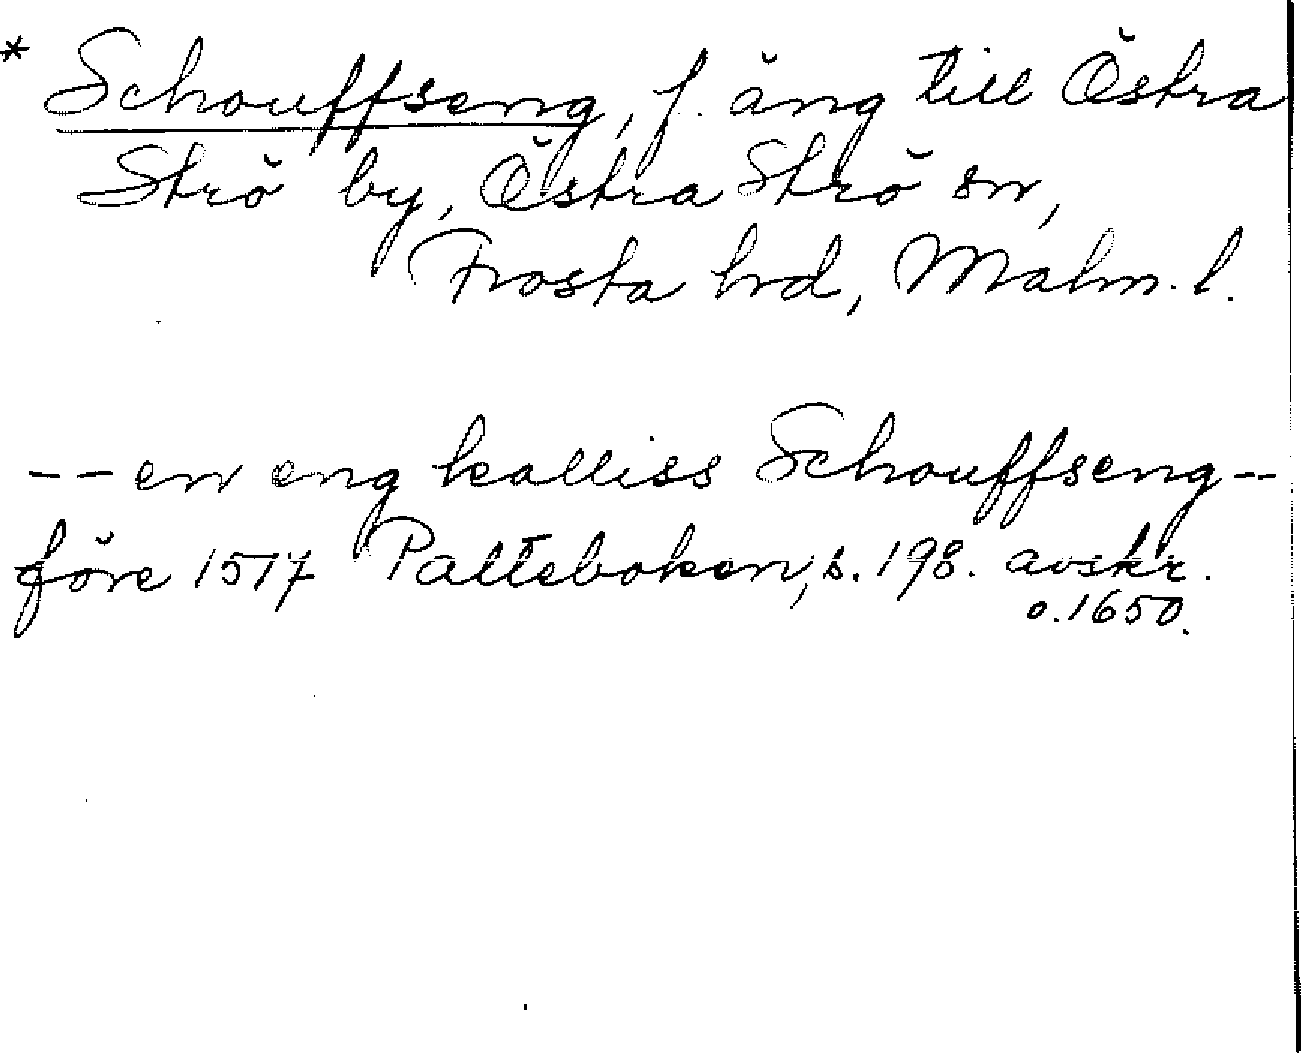 * Schouffseng, f. äng till Östra
Strö by, Östra Strö sn,
Frosta hrd, Malm. l.
-- en eng kalliss Schouffseng --
före 1517 Palteboken, s. 198. avskr.
o. 1650.